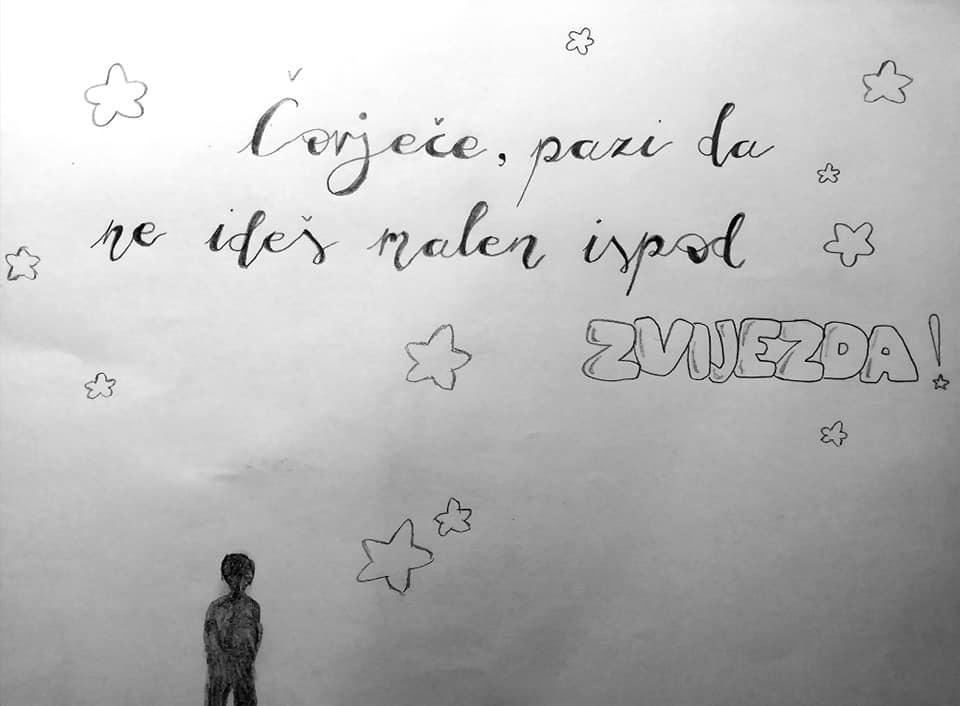 Čovječe, pazi da
ne ideš malen ispod
ZVIJEZDA!